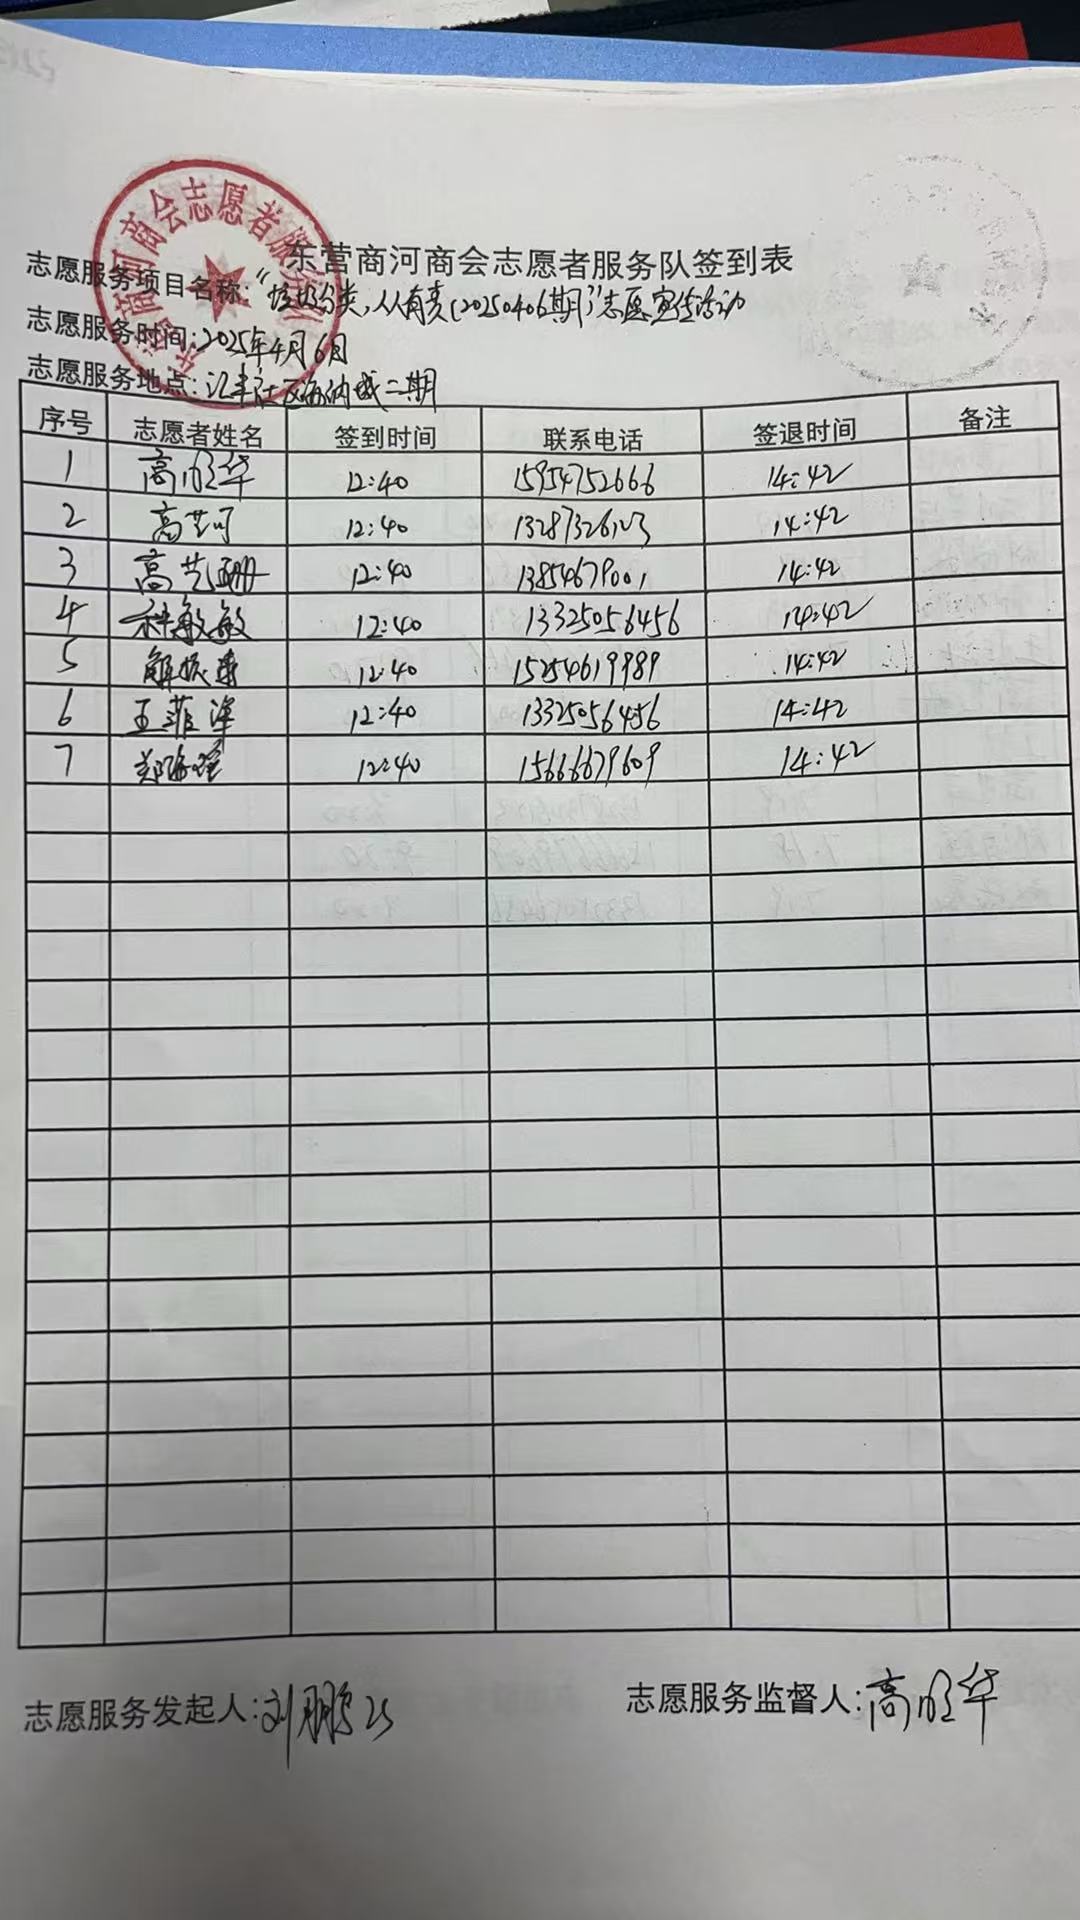 东营商河商会志愿者服务队签到表
志愿服务项目名称:“垃圾分类,人人有责(20250406期)”志愿宣传活动
志愿服务时间:2025年4月6日
志愿服务地点:汇丰社区海纳城二期
序号 志愿者姓名 签到时间 联系电话 签退时间 备注
1 高明华 12:40 15954752666 14:42
2 高艺珂 12:40 13287326123 14:42
3 高艺珊 12:40 13854679001 14:42
4 敏敏 12:40 13325056456 14:42
5 解 12:40 15254619989 14:42
6 王菲泽 12:40 13325056456 14:42
7 郑海 12:40 15666679609 14:42
志愿服务发起人:刘鹏 志愿服务监督人:高明华